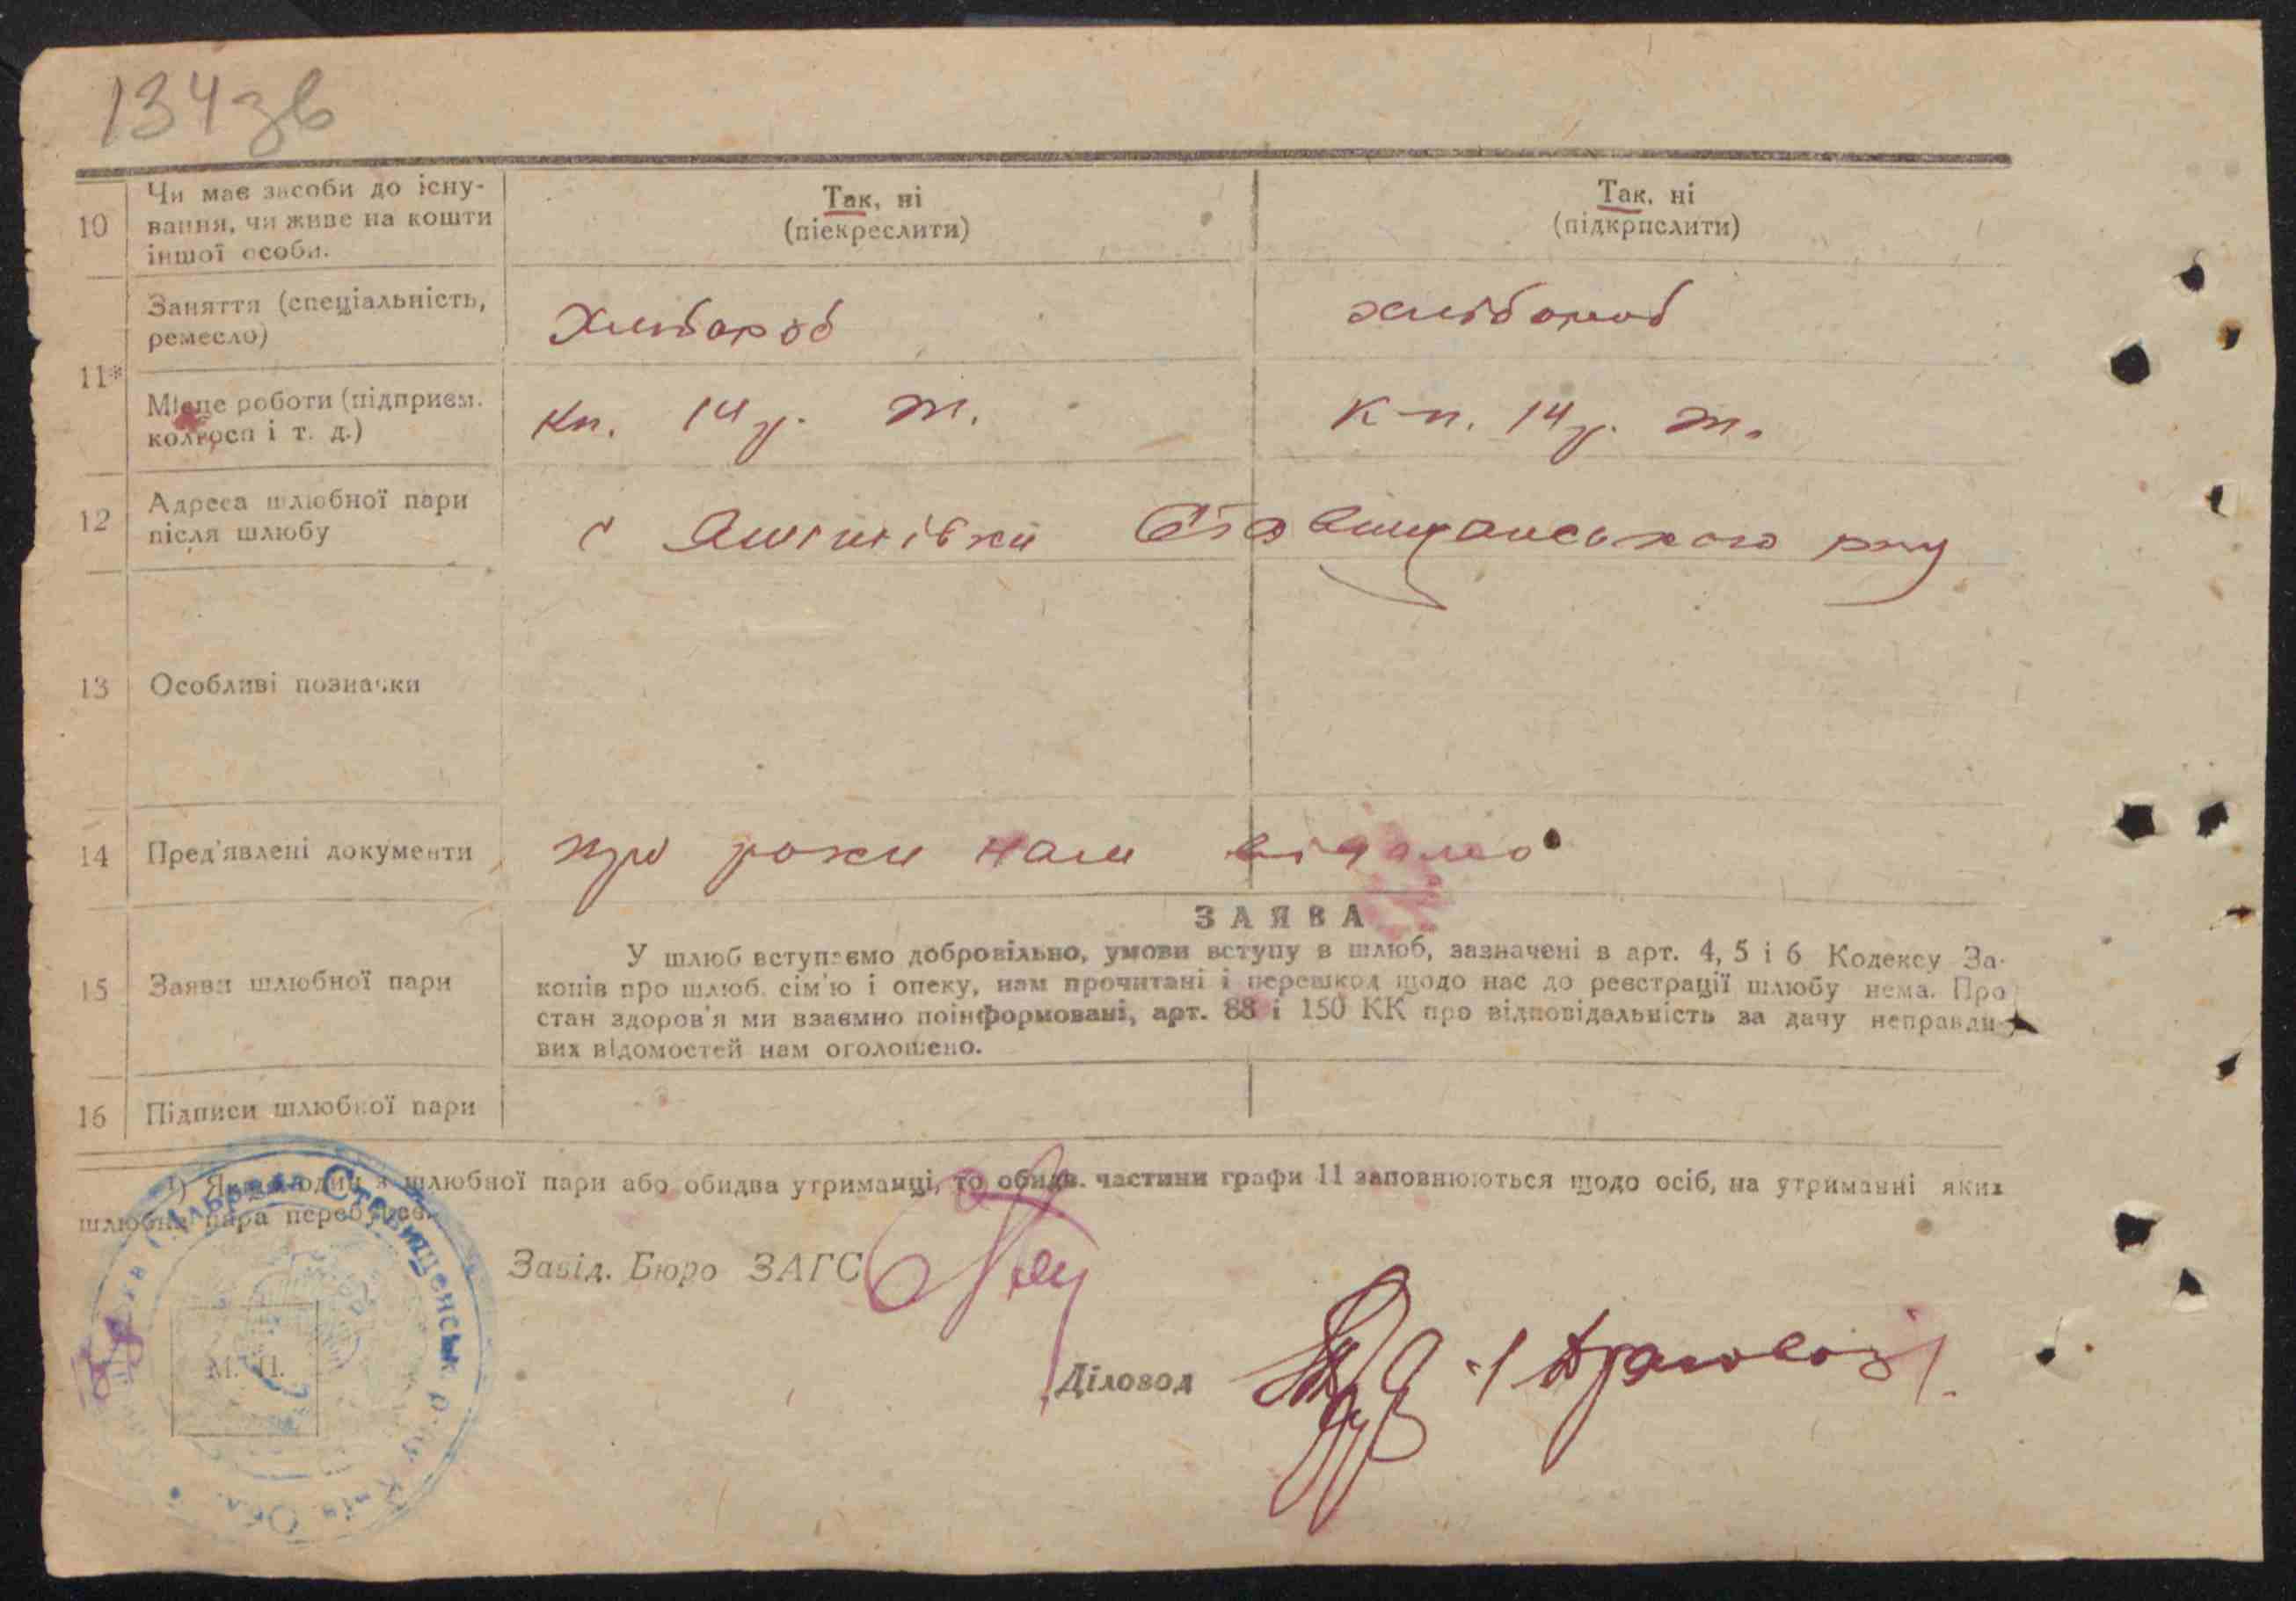 134зв
10
Чи має засоби до існу-
вання, чи живе на кошти
іншої особи.
Так, ні
(піекреслити)
Так, ні
(підкрпслити)
11*
Заняття (спеціальність,
ремесло)
Хлібороб
хлібороб
Місце роботи (підприєм.
колгосп і т. д.)
Кп. 14 р. Ж.
К-п. 14 р. Ж.
12
Адреса шлюбної пари
після шлюбу
с Станищанського рну
13
Особливі позначки
14
Пред'явлені документи
про роки нам відомо
15
Заяви шлюбної пари
ЗАЯВА
У шлюб вступаємо добровільно, умови вступу в шлюб, зазначені в арт. 4, 5 і 6 Кодексу За-
конів про шлюб, сім'ю і опеку, нам прочитані і перешкод щодо нас до реєстрації шлюбу нема. Про
стан здоров'я ми взаємно поінформовані, арт. 88 і 150 КК про відповідальність за дачу неправди-
вих відомостей нам оголошено.
16
Підписи шлюбної пари
1) Якщо один з шлюбної пари або обидва утриманці, то обидв. частини графи 11 заповнюються щодо осіб, на утриманні яких
шлюбна пара перебуває.
Завід. Бюро ЗАГС
М. П.
Ставищенськ
Діловод